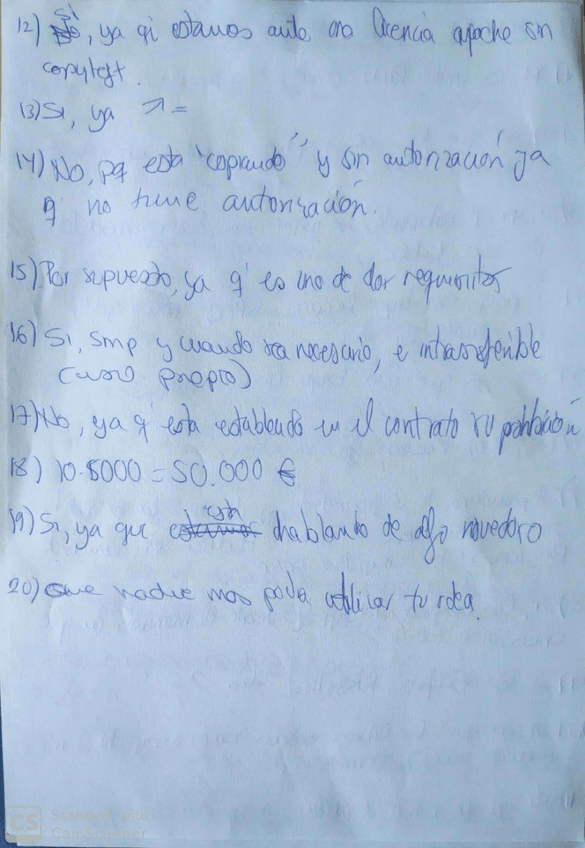 12) Si, ya qi estamos ante una licencia apache sin
copyleft.
13) Si, ya ↗ =
14) No, pq esta "copiando" y sin autorización ya
q' no tiene autorización.
15) Por supuesto, ya q' es uno de los requisitos
16) Si, smp y cuando sea necesario, e intransferible
(uso propio)
17) No, ya q' esta establecido en el contrato su prohibición
18) 10.5000 = 50.000 €
19) Si, ya que está hablando de algo novedoso
20) Que nadie mas pueda utilizar tu idea.
CS Scanned with
CamScanner